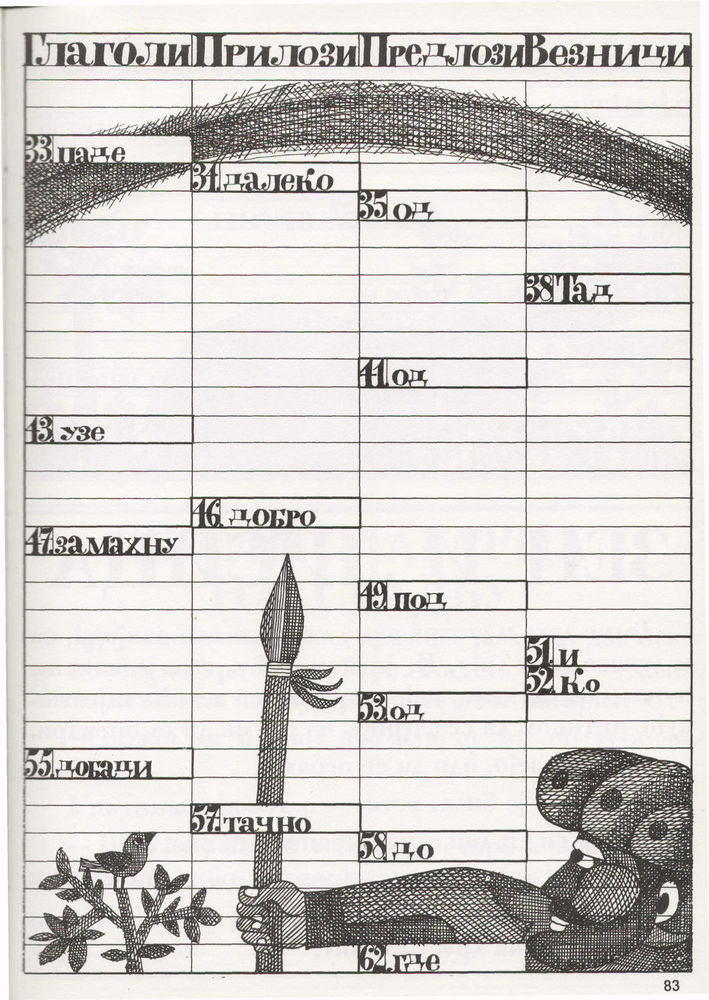 Глаголи Прилози Предлози Везници
33 паде
34 далеко
35 од
38 Тад
41 од
43 узе
46 добро
47 замахну
49 под
51 и
52 Ко
53 од
55 добаци
57 тачно
58 до
62 где
83